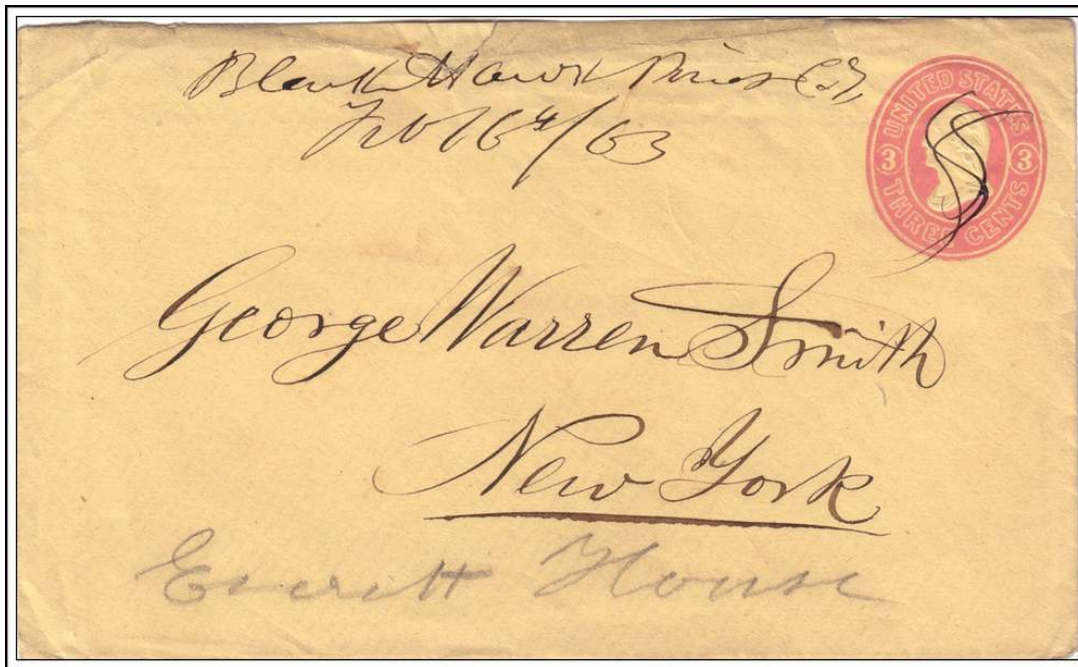 Black Hawk Point C.T.
Feb 16th/63
UNITED STATES
3 3
THREE CENTS
George Warren Smith
New York
Everett House